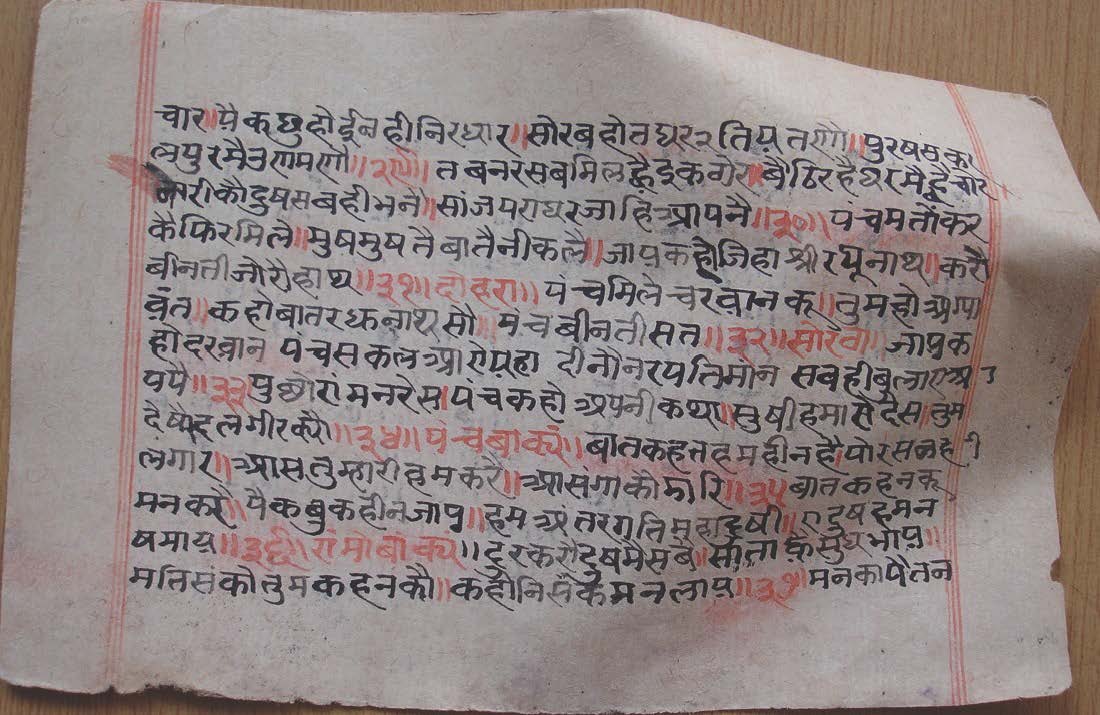 चार॥पै कछु होई नही निरधार॥सोर बहोत घर२ तिय तणौ॥पुरष सका
लपुरमै ॥२९॥ तब नर सब मिल ह्वै इक ठोर॥बैठि रहै
नारीकौ दुष सबही भनै॥सांज पराघर जाहि आपनै॥३०॥ पंच मतौ कर
कै फिर मिलै॥मुष मुष तै बातै नीकलै॥जाय कहौ जिहा श्री रघूनाथ॥करौ
बीनती जोरौ हाथ॥३१॥दोहरा॥ पंच मिले दरवान कू॥तुम हो
वंत॥कहो बात रघुनाथ सौ॥पंच बीनती सत॥३२॥सोरठा॥जाय क
हो दरवान पंच सकल आए इहा दीनौ नरपति मांन सबही बुलाए
पपै॥३३॥पुछो रांम नरेस॥पंच कहो अपनी कथा॥सुषी हमारो देस॥तुम
देषे दलगीर क्यौ॥३४॥पंच बाक्यं॥बात कहन हम ही न है॥
लगार॥आस तुम्हारी हम करै॥ ॥३५ बात कहन कू
मन करै॥पै कबु कही न जाय॥हम अंतरगति महादुषी॥ए दुष हम न
षमाय॥३६॥रांमो बाक्यं॥दूर करो दुष मे सबै॥सीता के सुध भाय॥
मति संको तुम कहन कौ॥कहौ निसंक मन लाय॥३७॥मन का पै तन